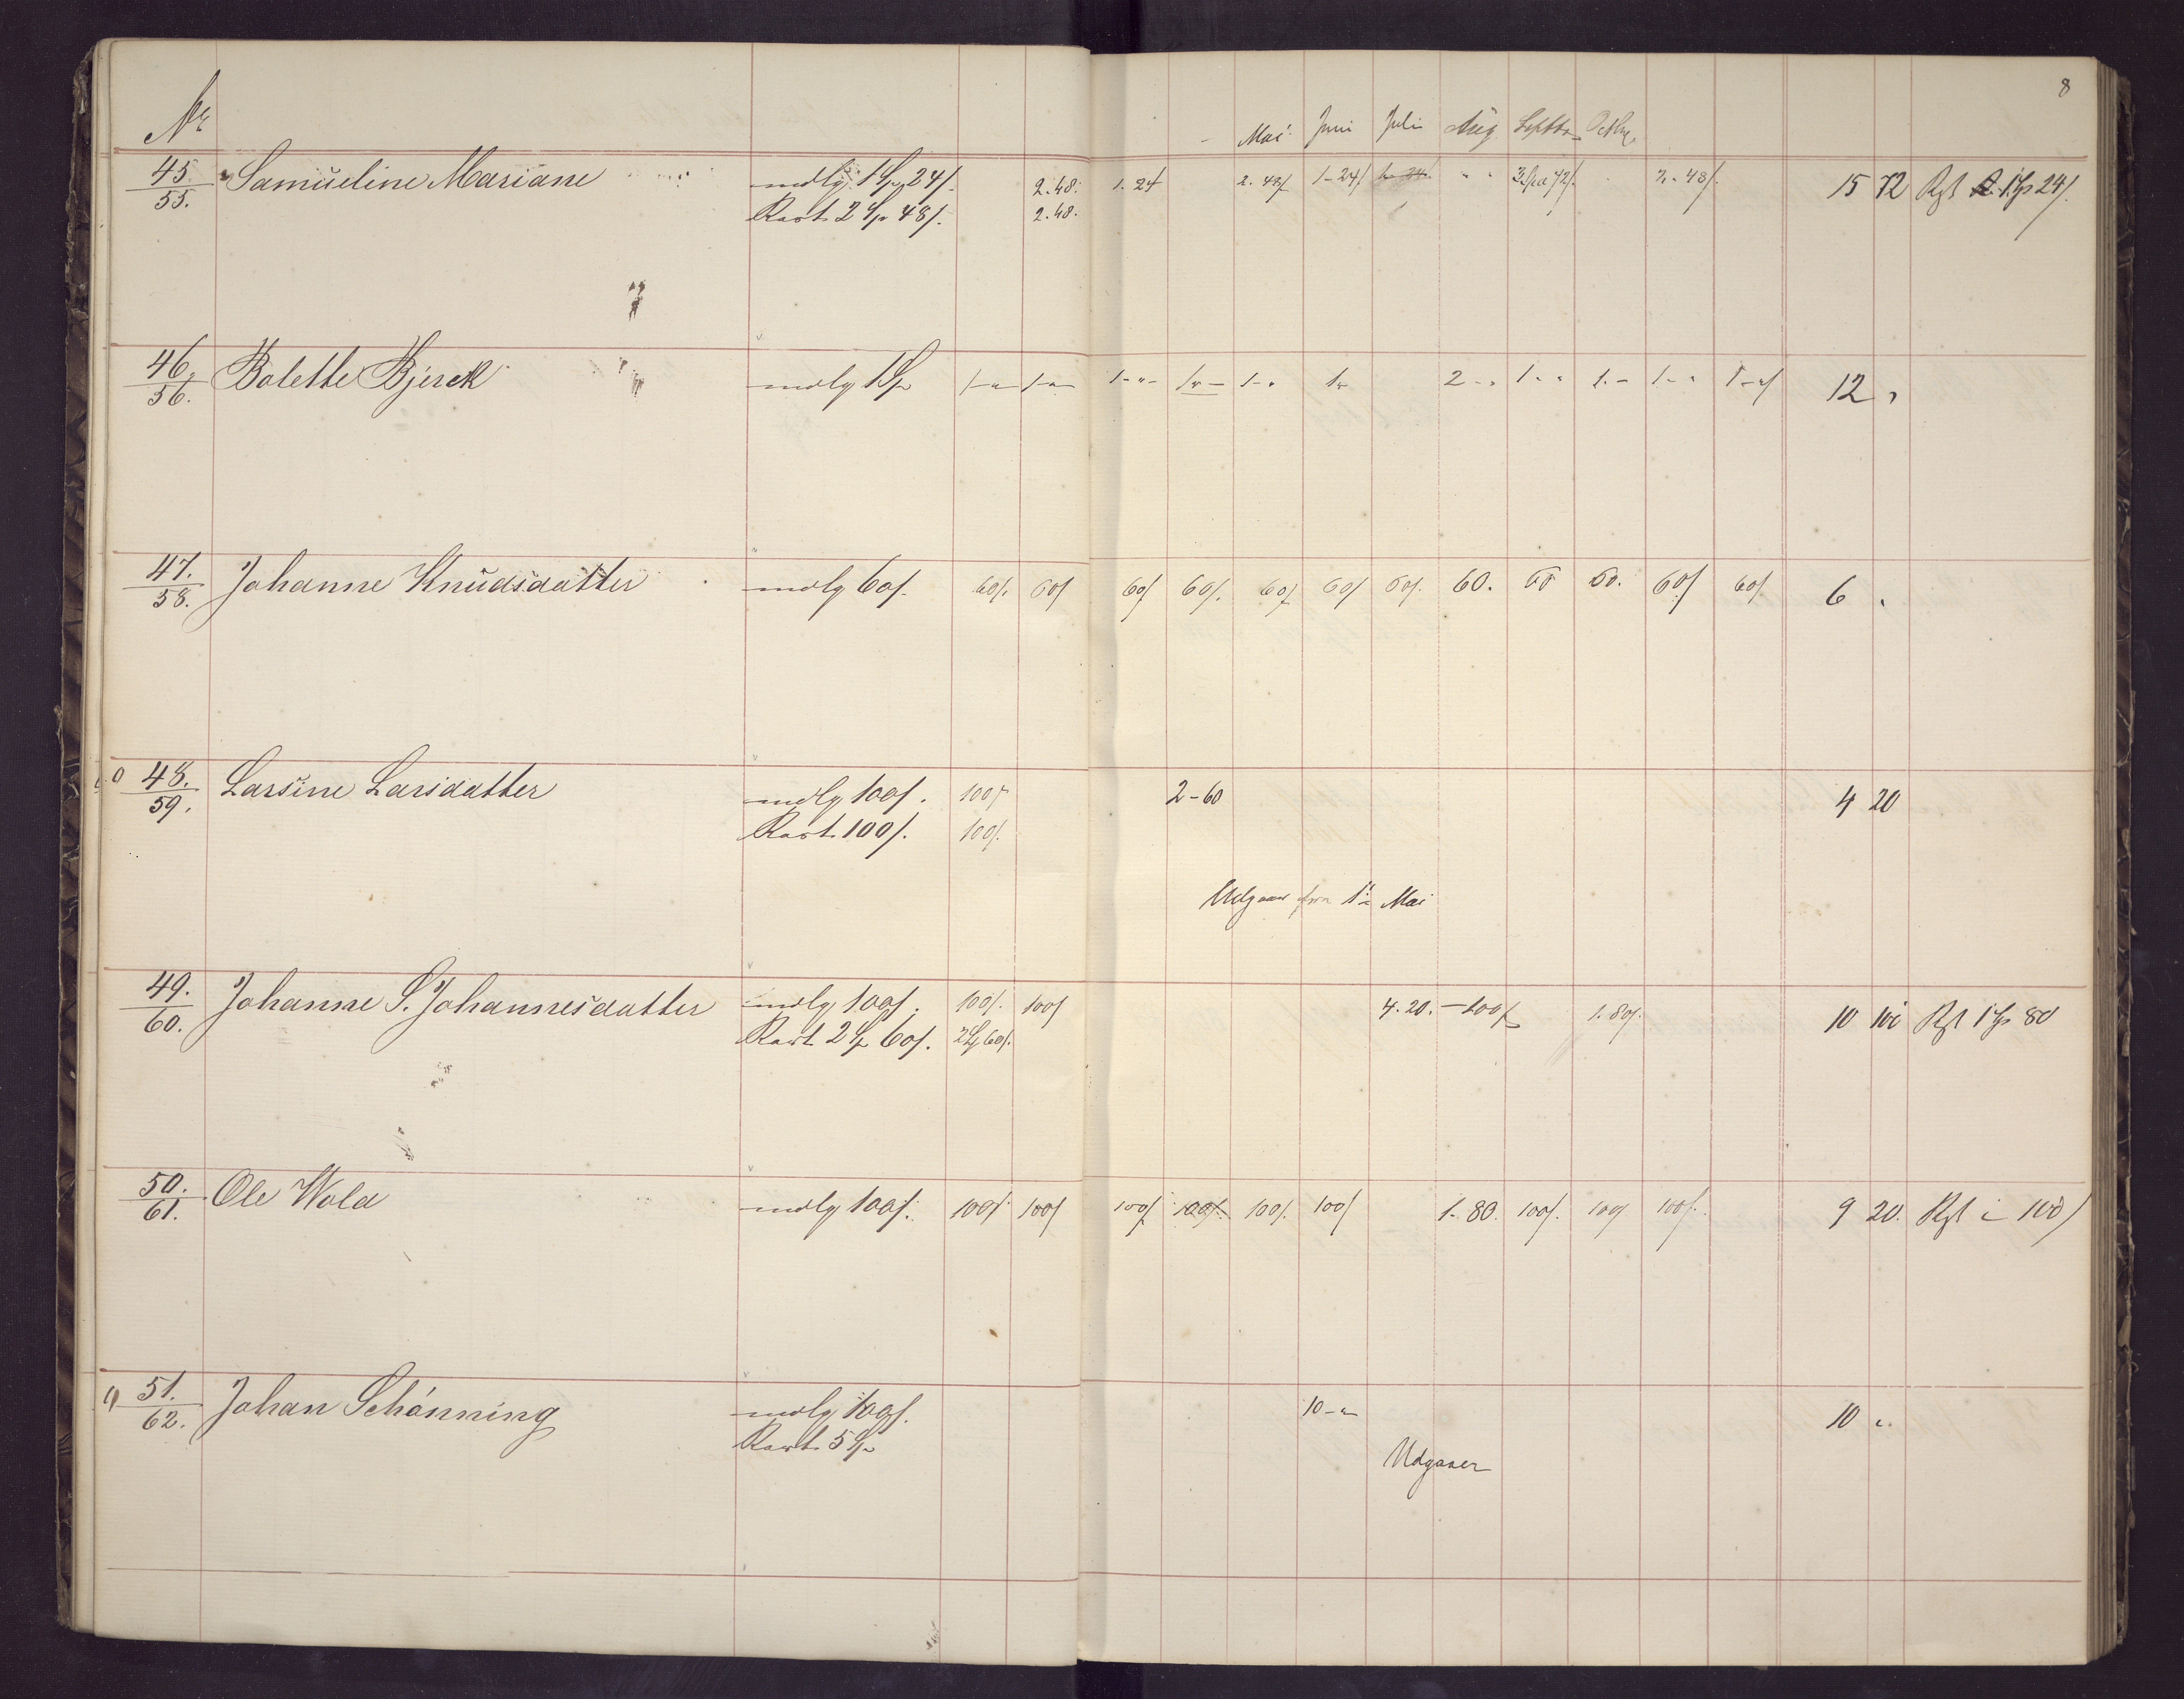 8
No Mai Juni Juli Aug Septbr Octbr
45. Samueline Mariane mdlg. 1 Sp 24 s. 2.48. 1.24 2.48 s 1-24 s 1-24 " " 3 Spd 72 s. 2.-48 s. 15 72 Rst 1 Sp 24 s.
55. Rest. 2 Sp 48 s. 2.48.
46. Bolette Bjerck mdlg 1 Sp 1-"- 1-"- 1-"- 1"- 1-" 1" 2-" 1-" 1.- 1-" 1-" 12 "
56.
47. Johanne Knudsdatter mdlg 60 s. 60 s. 60 s 60 s 60 s. 60 s 60 s 60 s. 60. 60 60. 60 s 60 s 6 "
58.
0 48. Larsine Larsdatter mdlg 100 s. 100 s 2-60 4 20
59. Rest. 100 s. 100 s.
Udgaaer fra 1ste Mai
49. Johanne S. Johannesdatter mdlg 100 s. 100 s. 100 s 4.20. -100 s 1.80 s. 10 100 Rst 1 Sp 80
60. Rest 2 Sp 60 s. 2 Sp 60 s.
50. Ole Wold mdlg 100 s. 100 s 100 s 100 s 100 s 100 s. 100 s 1-80. 100 s. 100 s 100 s. 9 20. Rst " 100 s
61.
51. Johan Schönning mdlg 100 s. 10-" 10 "
62. Rest. 5 Sp
Udgaaer